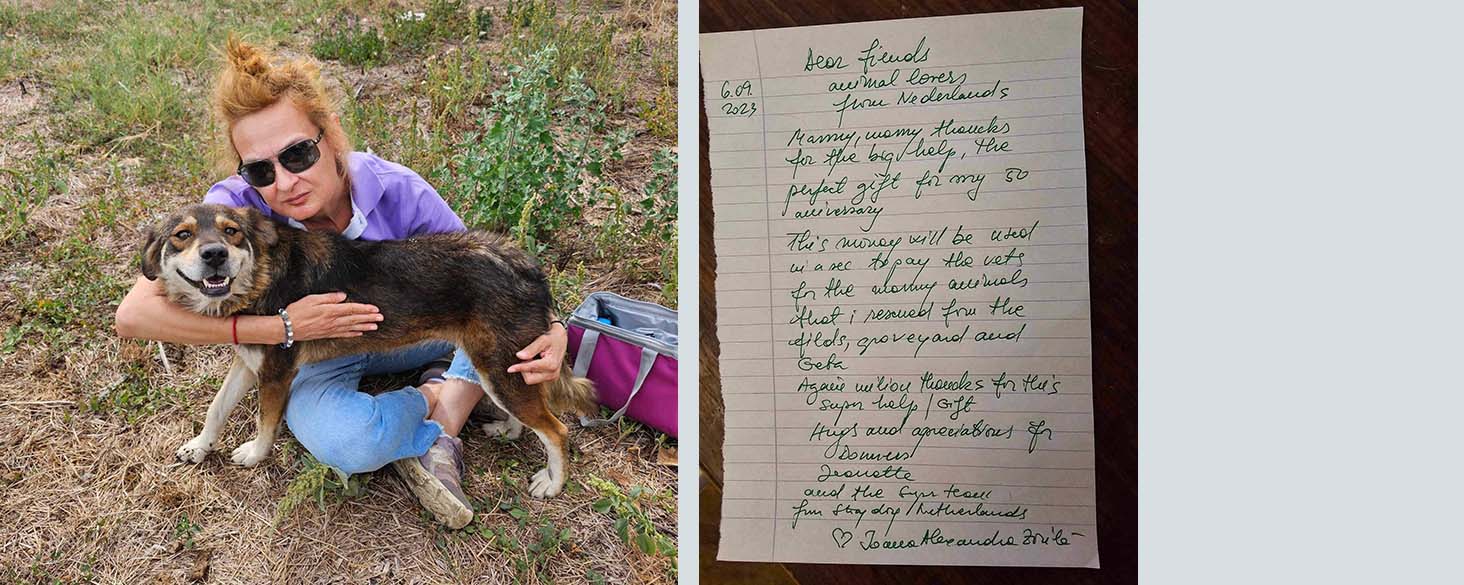 Dear fiends
animal lovers
from Nederlands
6.09.
2023
Manny, many thancks
for the big help, the
perfect gift for my 50
aniversary
This money will be used
in a sec to pay the vets
for the manny animals
that i rescued from the
filds, graveyard and
Geta
Again milion thancks for this
super help / Gift
Hugs and apreciations for
Donners
Jeanette
and the team
from Stray dog / Netherlands
♡ Ioana Alexandra